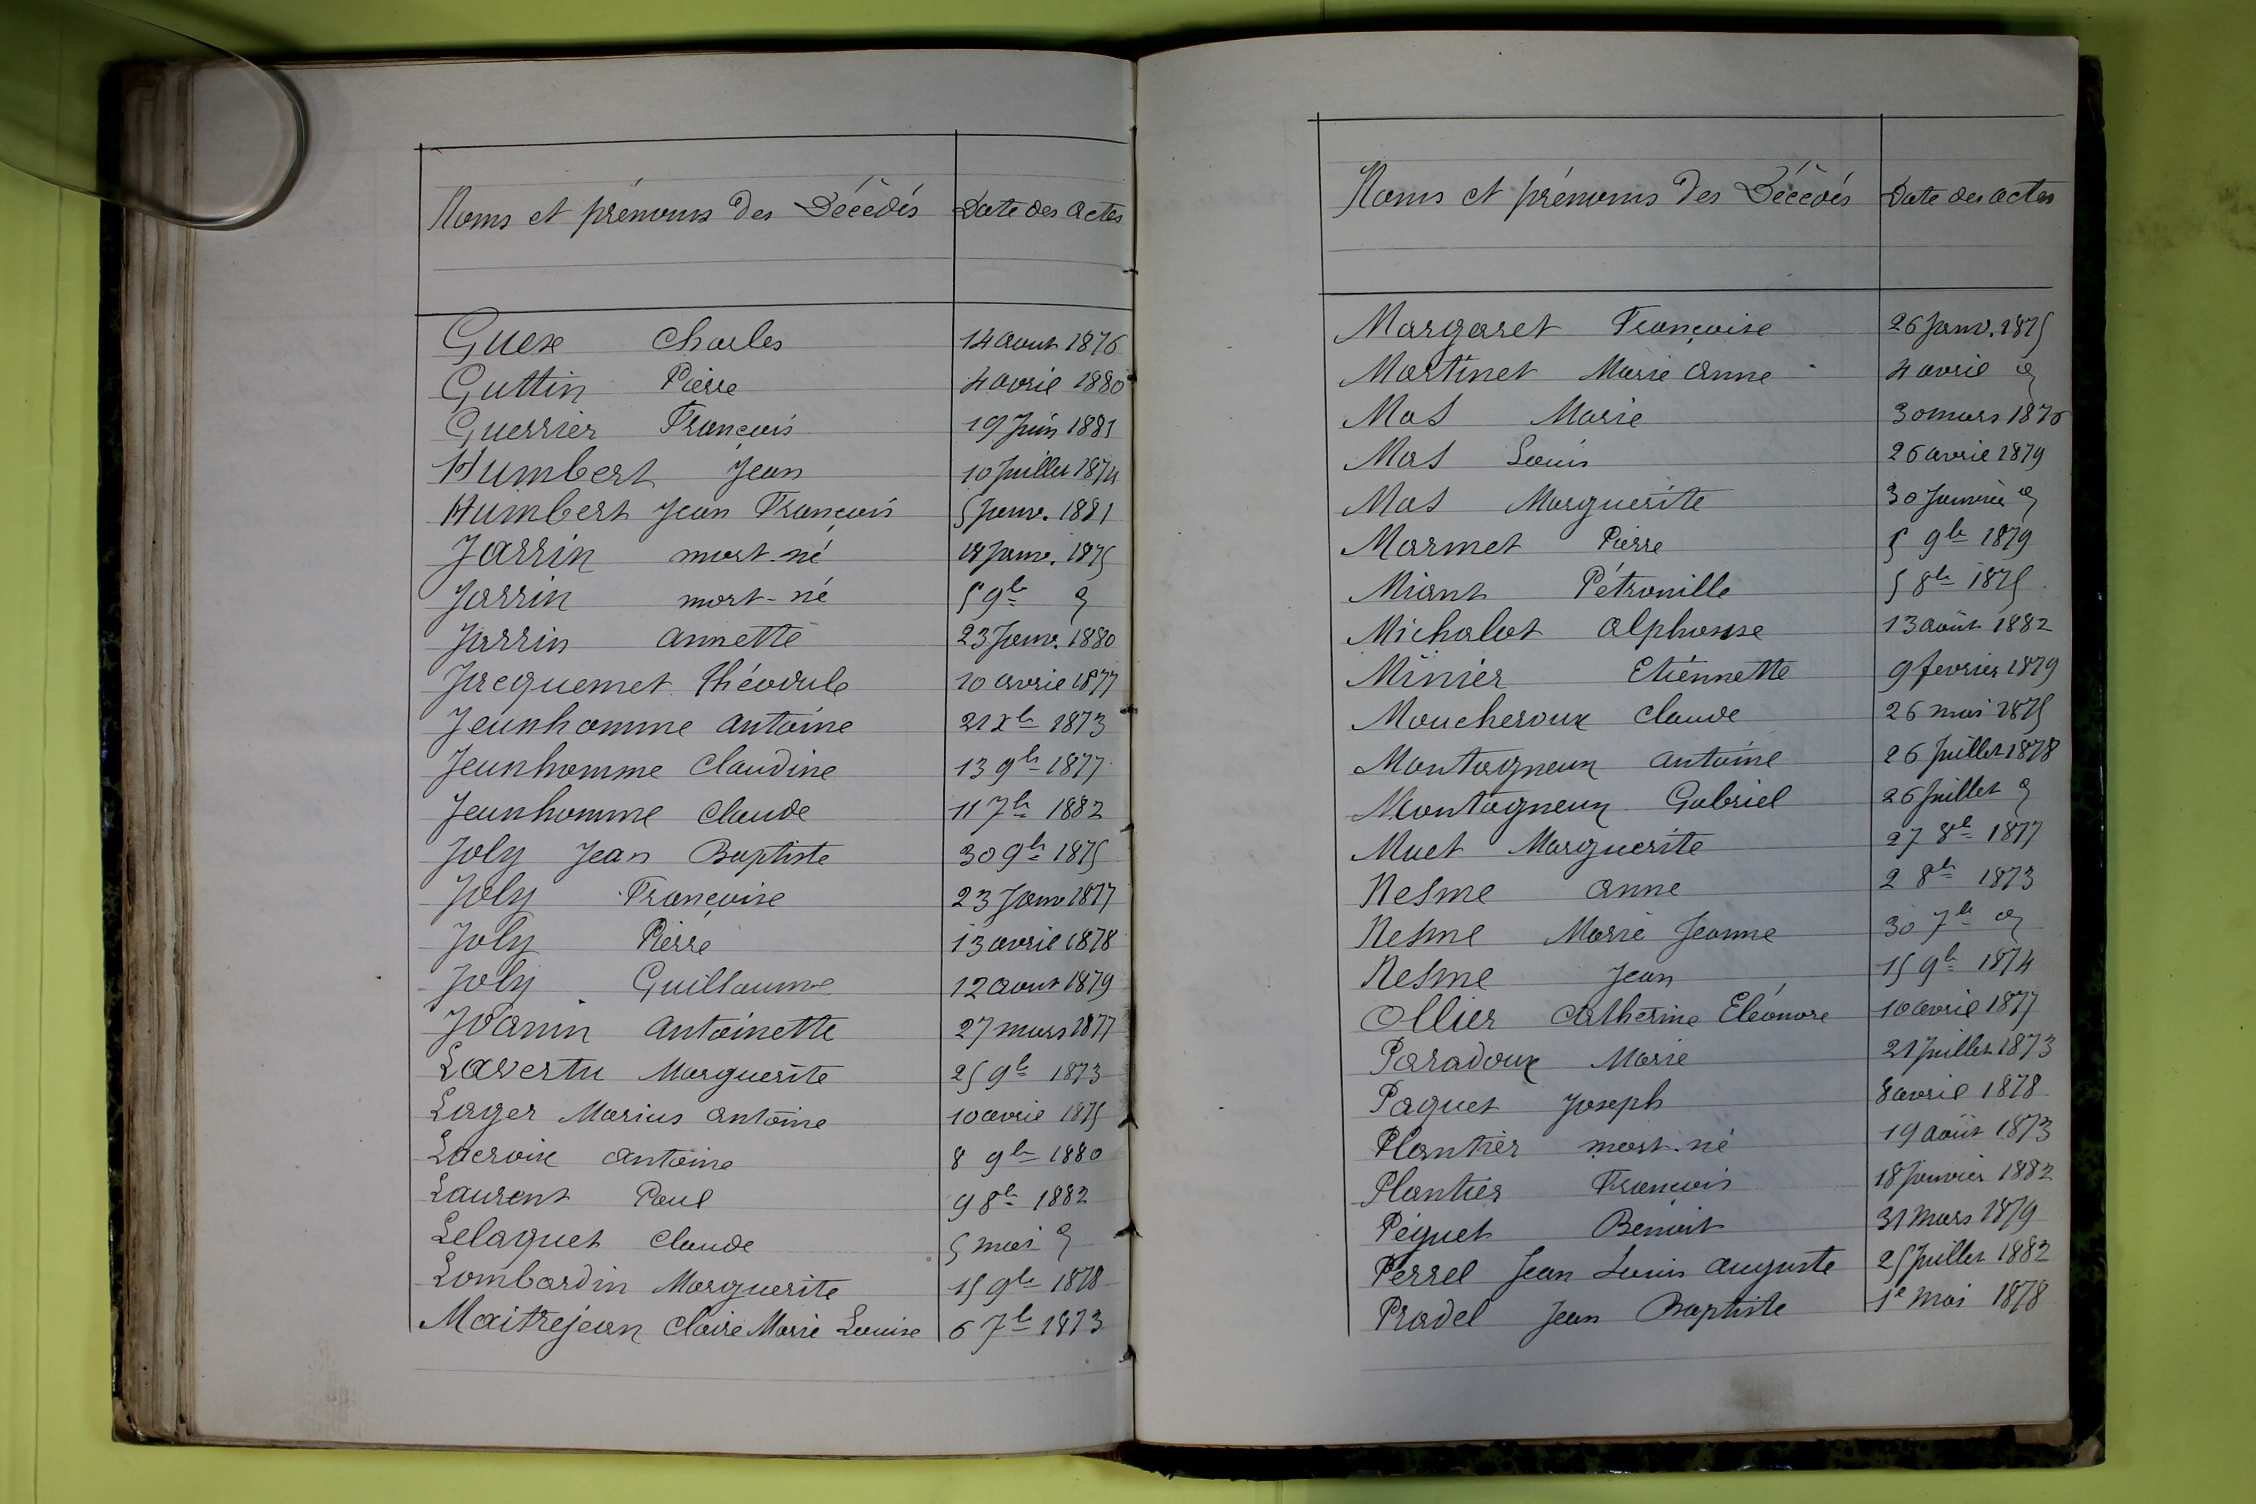 Noms et prénoms des Décédés Date des actes
Guex Charles 14 aout 1876
Guttin Pierre 4 avril 1880
Guerrier François 19 Juin 1881
Humbert Jean 10 Juillet 1874
Humbert Jean François 5 Janv. 1881
Jarrin mort-né 18 Janv. 1875
Jarrin mort-né 5 9bre d
Jarrin annette 23 Janv. 1880
Jacquemet Théodule 10 avril 1877
Jeunhomme antoine 21 Xbre 1873
Jeunhomme Claudine 13 9bre 1877
Jeunhomme Claude 11 7bre 1882
Joly Jean Baptiste 30 9bre 1875
Joly Françoise 23 Janv 1877
Joly Pierre 13 avril 1878
Joly Guillaume 12 aout 1879
Joanin antoinette 27 mars 1877
Lavertu Marguerite 25 9bre 1873
Lager Marius antoine 10 avril 1875
Lacroix antoine 8 9bre 1880
Laurent Paul 9 8bre 1882
Lelaquet Claude 5 mai d
Lombardin Marguerite 15 9bre 1878
Maitrejean Claire Marie Louise 6 7bre 1873
Noms et prénoms des Décédés Date des actes
Margaret Françoise 26 Janv. 1875
Martinet Marie anne 4 avril d
Mas Marie 30 mars 1876
Mas Louis 26 avril 1879
Mas Marguerite 30 Janvier d
Marmet Pierre 5 9bre 1879
Miant Pétronille 5 8bre 1875
Michalot alphonse 13 août 1882
Minier Etiennette 9 fevrier 1879
Moucheroux Claude 26 mai 1875
Montagneux antoine 26 Juillet 1878
Montagneux Gabriel 26 Juillet d
Muet Marguerite 27 8bre 1877
Nesme anne 2 8bre 1873
Nesme Marie Jeanne 30 7bre d
Nesme Jean 15 9bre 1874
Ollier Catherine Eléonore 10 avril 1877
Paradoux Marie 21 Juillet 1873
Paquet Joseph 8 avril 1878
Plantier mort-né 19 août 1873
Plantier François 18 Janvier 1882
Péguet Benoit 31 Mars 1879
Perrel Jean Louis auguste 25 Juillet 1882
Pradel Jean Baptiste 1e mai 1878